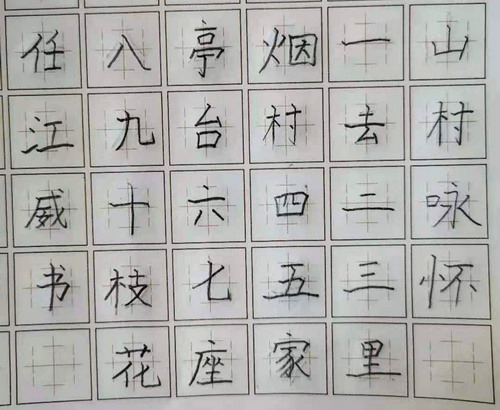 山村咏怀
一去二三里
烟村四五家
亭台六七座
八九十枝花
任江威书